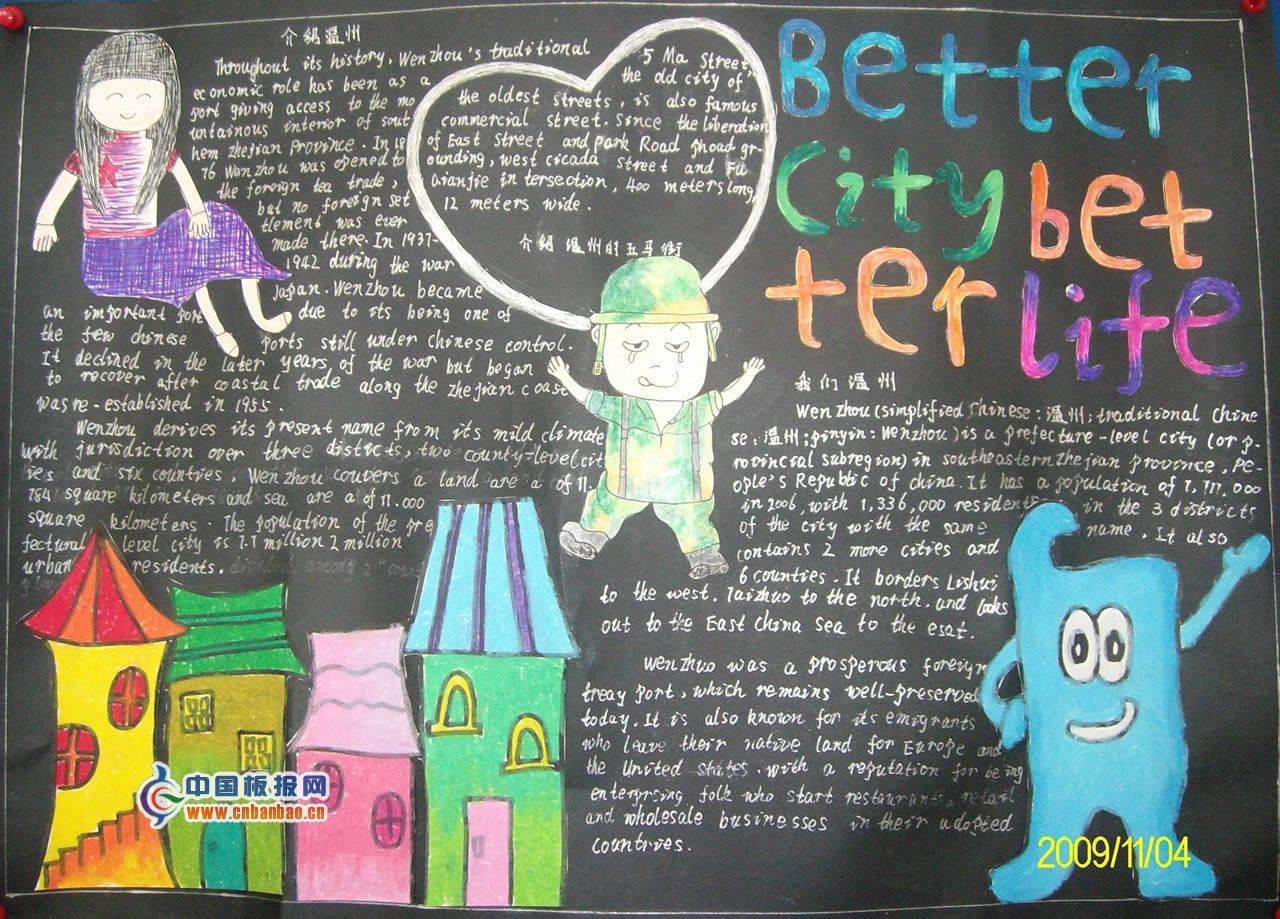 介绍温州
Throughout its history, Wenzhou's traditional
economic role has been as a
port giving access to the mo
untainous interior of sout
hern zhejian province. In 18
76 Wenzhou was opened to
the foreign tea trade,
but no foreign set
tlement was ever
made there. In 1937-
1942 during the war
Japan. Wenzhou became
an important port due to its being one of
the few chinese ports still under chinese control.
It declined in the later years of the war but began
to recover after coastal trade along the zhejian coast
was re-established in 1955.
Wenzhou derives its present name from its mild climate
with jurisdiction over three disticts, two county-level cit
ies and six counties. Wenzhou couvers a land are a of 11.
784 square kilometers and sea are a of 11.000
square kilometers. The population of the pre
fectural level city is 7.7 million 2 million
urban residents.
5 Ma Street
the old city of
the oldest streets, is also famous
commercial street. Since the liberation
of East Street and park Road gr-
ounding, west cicada street and Fu
Qianjie in tersection, 400 meters long,
12 meters wide.
介绍 温州的五马街
Better
City bet
ter life
我们温州
Wenzhou (simplified Chinese: 温州; traditional Chine
se: 温州; pinyin: Wenzhou) is a prefecture-level city (or p-
rovincial subregion) in southeastern zhejian province, Pe-
ople's Republic of china. It has a population of
in 2006, with 1,336,000 residents in the 3 districts
of the city with the same name. It also
contains 2 more cities and
6 counties. It borders Lishui
to the west, Taizhuo to the north, and looks
out to the East China Sea to the esat.
Wenzhuo was a prosperous foreign
treay port, which remains well-preserved
today. It is also known for its emigrants
who leave their native land for Europe and
the United states. with a reputation for being
enterprsing folk who start restaurants, retail
and wholesale businesses in their adopted
countrives.
中国板报网
www.cnbanbao.cn
2009/11/04